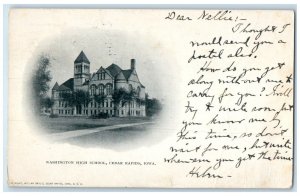 Dear Nellie:-
Thought I
would send you a
postal also.
How do you get
along without me to
carry for you? I will
try it until soon, but
you know me by
this time, so don't
wait for me, but write
whenever you get the time
WASHINGTON HIGH SCHOOL, CEDAR RAPIDS, IOWA.